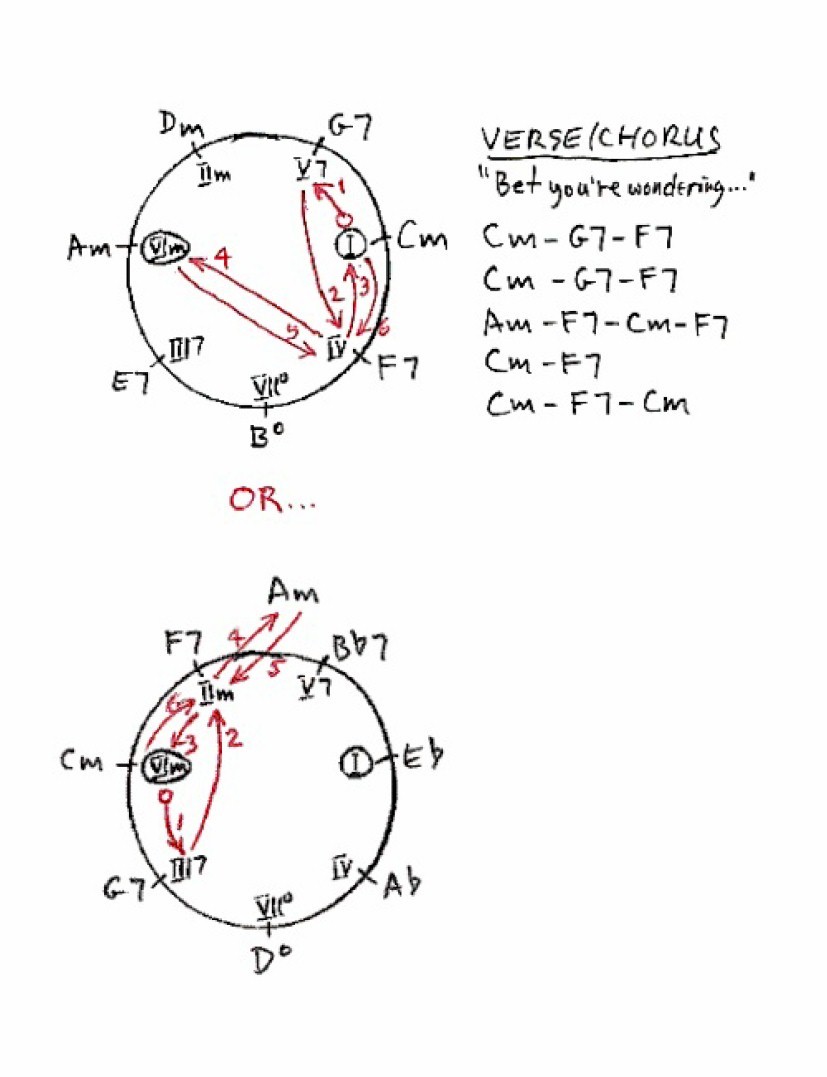 Dm
G7
IIm
V7
1
Am
VIm
4
I
Cm
2
3
5
6
III7
IV
E7
F7
VII°
B°
VERSE/CHORUS
"Bet you're wondering..."
Cm - G7 - F7
Cm - G7 - F7
Am - F7 - Cm - F7
Cm - F7
Cm - F7 - Cm
OR...
Am
F7
4
5
Bb7
IIm
V7
6
3
2
Cm
VIm
I
Eb
1
III7
IV
G7
Ab
VII°
D°